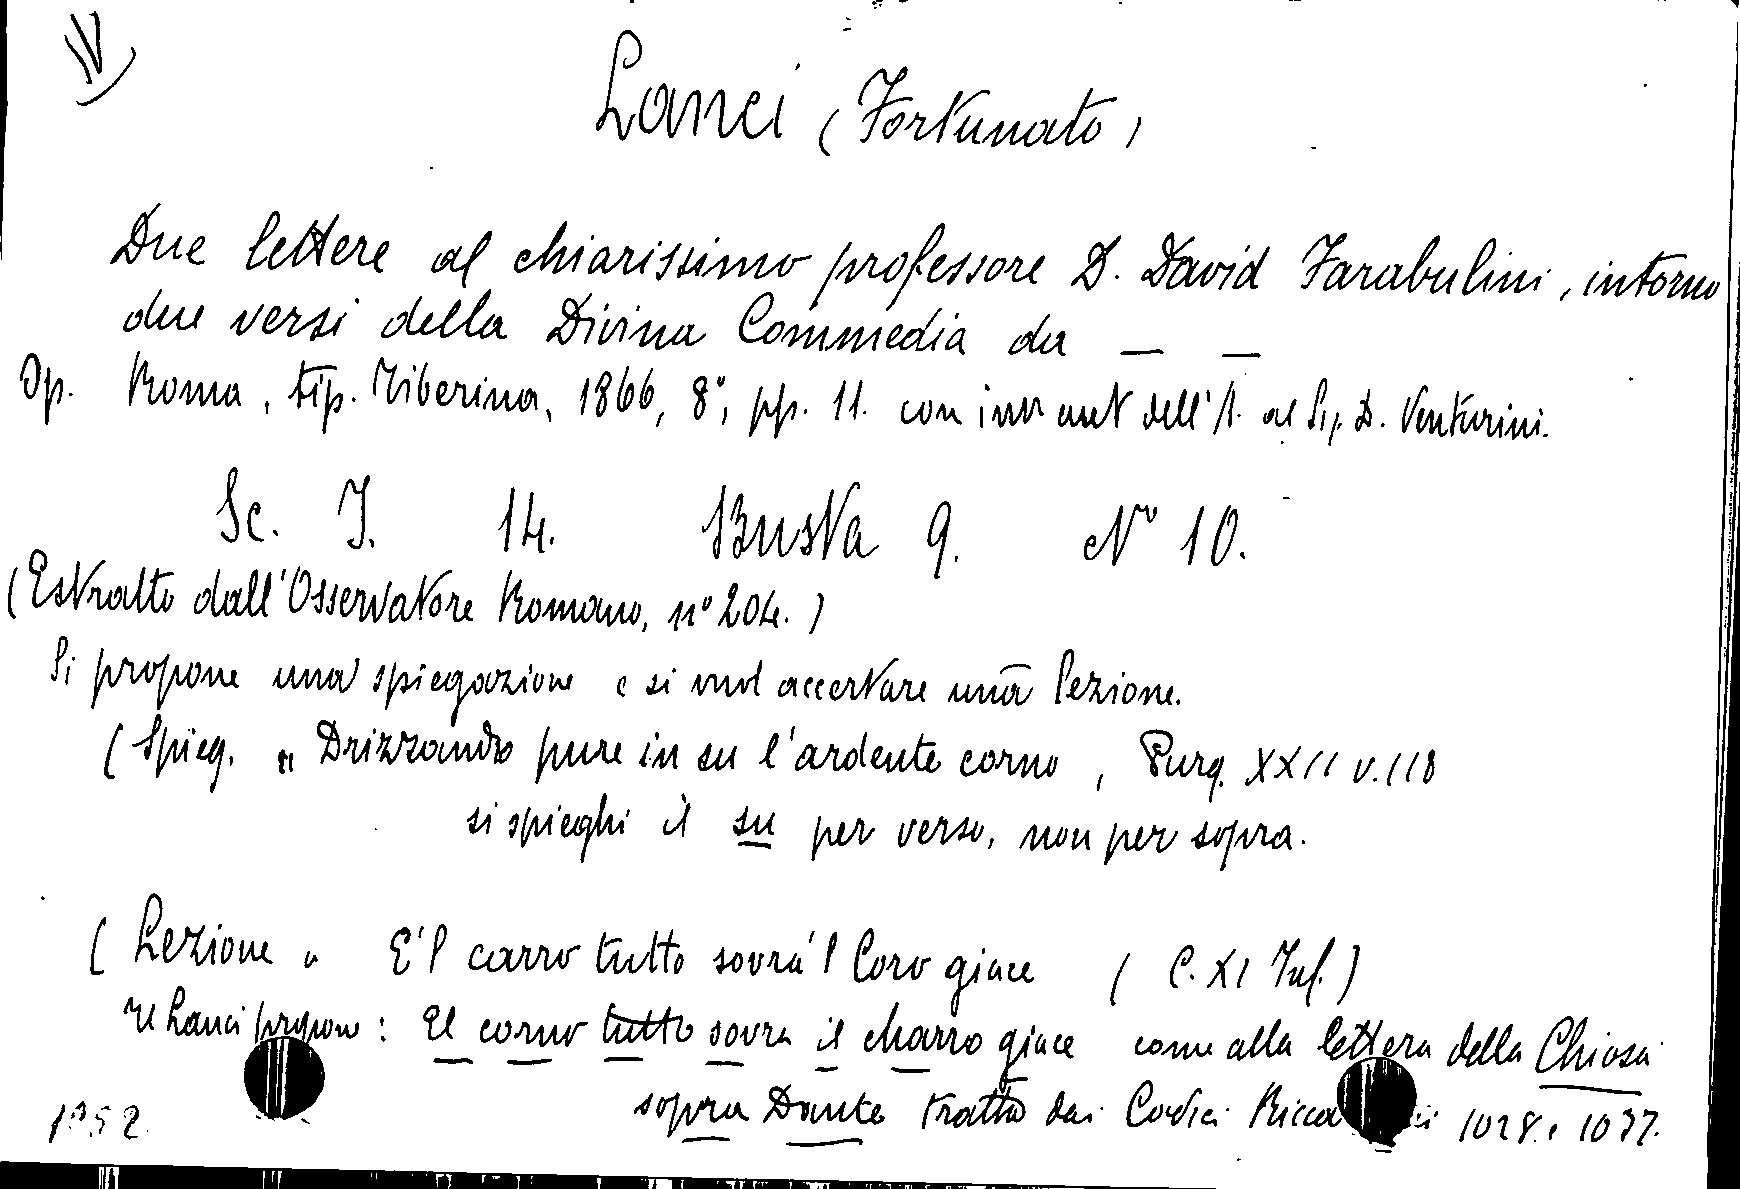 IV
Lanci (Fortunato)
Due lettere al chiarissimo professore D. David Farabulini, intorno
due versi della Divina Commedia da — —
Op. Roma, tip. Tiberina, 1866, 8°, pp. 11. con aut dell'A. al Sig. D. Venturini.
Sc. I. 14. Busta 9. N° 10.
(Estratto dall'Osservatore Romano, n° 204.)
Si propone una spiegazione e si vuol accertare una lezione.
(Spieg. " Drizzando pure in su l'ardente corno, Purg. XXII v. 118
si spieghi il su per verso, non per sopra.
(Lezione " E'l carro tutto sovra'l Coro giace (C. XI Inf.)
Il Lanci propone: El corno tutto sovra il charro giace come alla lettera della Chiosa
sopra Dante tratta dai Codici 1028. 1037.
1952